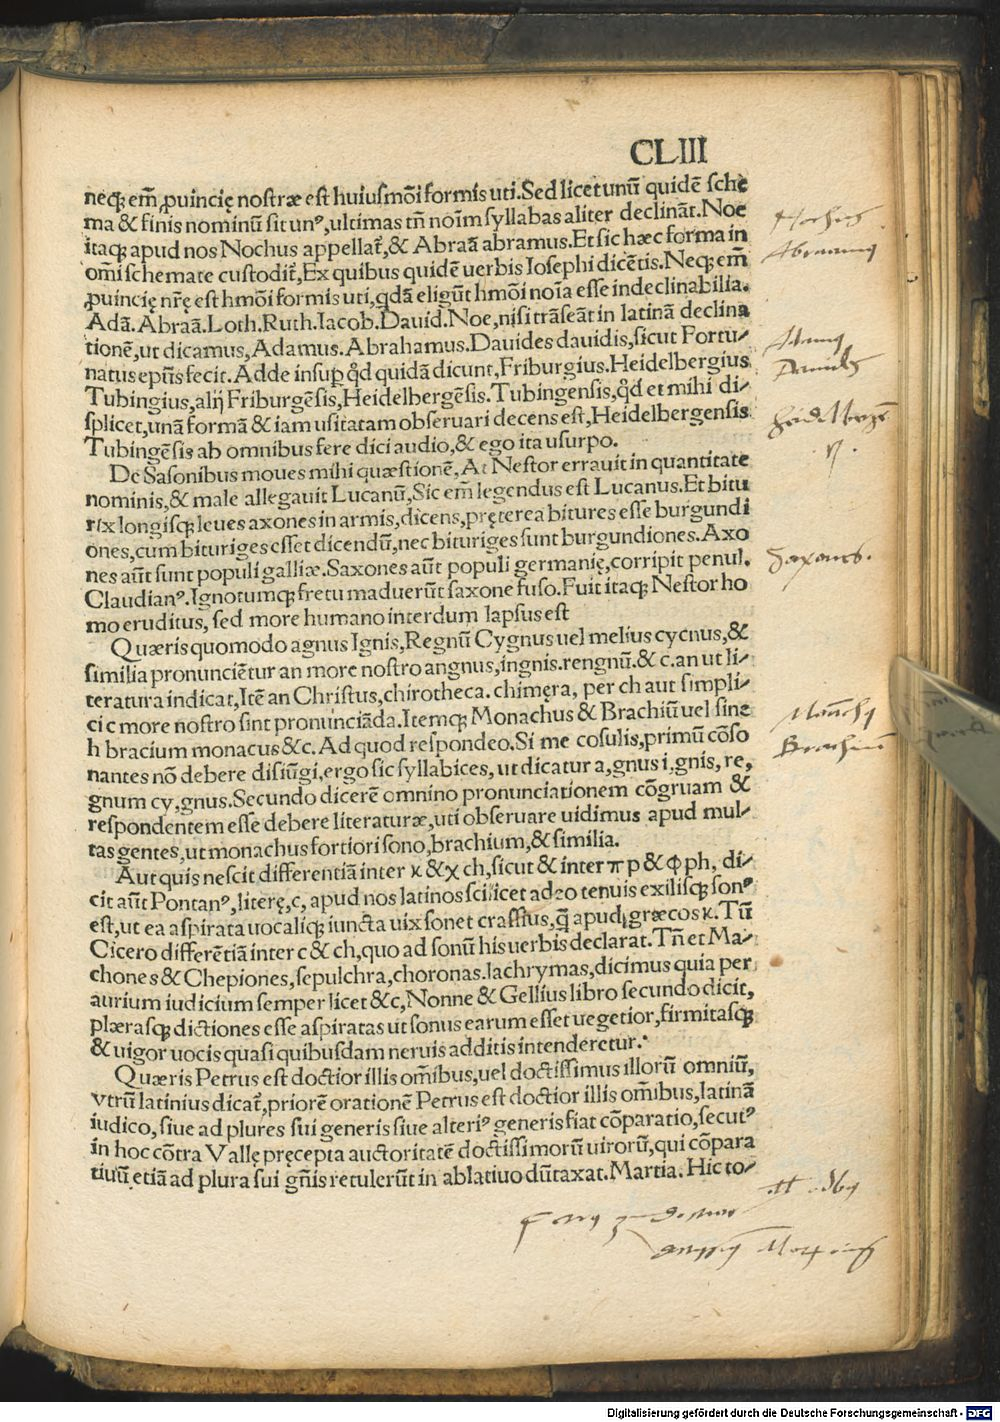 CLIII
neqꝫ em̄ ꝓuincię nostræ est huiusmōi formis uti. Sed licet unū quidē sche
ma & finis nominū sit unꝰ, ultimas tn̄ noīm syllabas aliter declināt. Noe
itaqꝫ apud nos Nochus appellat̄, & Abraā abramus. Et sic hæc forma in
omi schemate custodit̄, Ex quibus quidē uerbis Iosephi dicētis. Neqꝫ em̄
ꝓuincię nr̄ę est hmōi formis uti, qdā eligūt hmōi noīa esse indeclinabilia.
Adā. Abraā. Loth. Ruth. Iacob. Dauid. Noe, nisi trāseāt in latinā declina
tionē, ut dicamus, Adamus. Abrahamus. Dauides dauidis, sicut Fortu⸗
natus ep̄us fecit. Adde insuꝑ qd̄ quidā dicunt, Friburgius. Heidelbergius
Tubingius, alij Friburgēsis, Heidelbergēsis. Tubingensis, qd̄ et mihi di⸗
splicet, unā formā & iam usitatam obseruari decens est, Heidelbergensis
Tubingēsis ab omnibus fere dici audio, & ego ita usurpo.
De Sasonibus moues mihi quæstionē, At Nestor errauit in quantitate
nominis, & male allegauit Lucanū, Sic em̄ legendus est Lucanus. Et bitu
rix longisqꝫ leues axones in armis, dicens, pręterea bitures esse burgundi
ones, cum bituriges esset dicendū, nec bituriges sunt burgundiones. Axo
nes aūt sunt populi galliæ. Saxones aūt populi germanię, corripit penul.
Claudianꝰ. Ignotumqꝫ fretu maduerūt saxone fuso. Fuit itaqꝫ Nestor ho
mo eruditus, sed more humano interdum lapsus est
Quæris quomodo agnus Ignis, Regnū Cygnus uel melius cycnus, &
similia pronunciētur an more nostro angnus, ingnis. rengnū. & c. an ut li⸗
teratura indicat, Itē an Christus, chirotheca. chimęra, per ch aut simpli⸗
ci c more nostro sint pronunciāda. Itemqꝫ Monachus & Brachiū uel sine
h bracium monacus &c. Ad quod respondeo. Si me cōsulis, primū cōso
nantes nō debere disiūgi, ergo sic syllabices, ut dicatur a, gnus i, gnis, re,
gnum cy, gnus. Secundo dicerē omnino pronunciationem cōgruam &
respondentem esse debere literaturæ, uti obseruare uidimus apud mul⸗
tas gentes, ut monachus fortiori sono, brachium, & similia.
Aut quis nescit differentiā inter κ & χ ch, sicut & inter π p & φ ph, di⸗
cit aūt Pontanꝰ, literę, c, apud nos latinos scilicet adeo tenuis exilisqꝫ sonꝰ
est, ut ea aspirata uocaliqꝫ iuncta uix sonet crassius, q̄ apud græcos κ. Tū
Cicero differētiā inter c & ch, quo ad sonū his uerbis declarat. Tn̄ et Ma⸗
chones & Chepiones, sepulchra, choronas. lachrymas, dicimus quia per
aurium iudicium semper licet &c, Nonne & Gellius libro secundo dicit,
plærasqꝫ dictiones esse aspiratas ut sonus earum esset uegetior, firmitasqꝫ
& uigor uocis quasi quibusdam neruis additis intenderetur.
Quæris Petrus est doctior illis om̄ibus, uel doctissimus illorū omniū,
vtrū latinius dicat̄, priorē orationē Petrus est doctior illis om̄ibus, latinā
iudico, siue ad plures sui generis siue alteriꝰ generis fiat cōparatio, secutꝰ
in hoc cōtra Vallę pręcepta auctoritatē doctissimorū uirorū, qui cōpara
tiuū etiā ad plura sui gn̄is retulerūt in ablatiuo dūtaxat. Martia. Hic to⸗
Nochus
Abramus
Adamus
Dauides
Saxones.
Monachus
Brachium
Digitalisierung gefördert durch die Deutsche Forschungsgemeinschaft - DFG